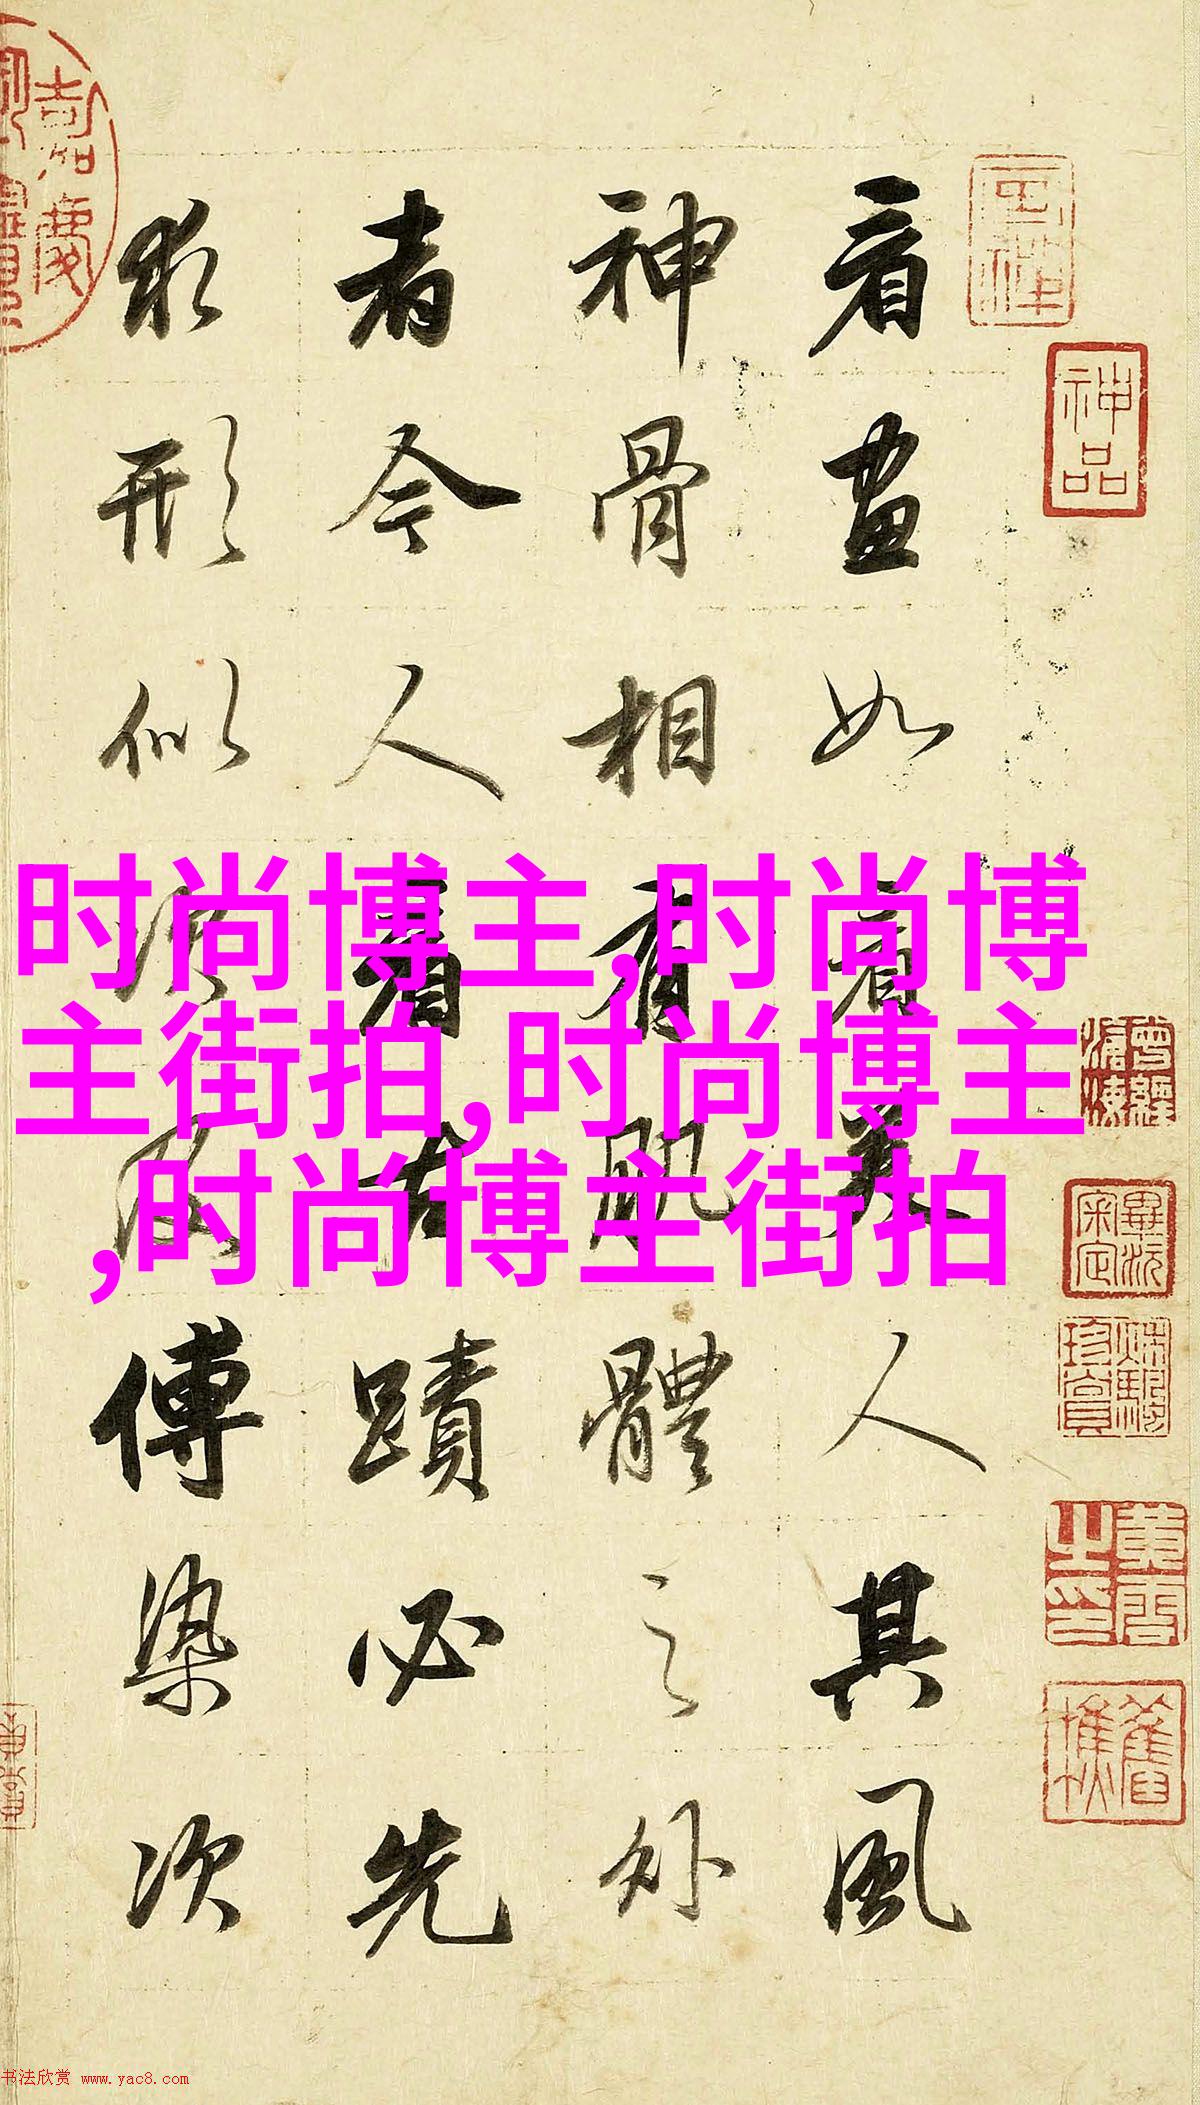 看畫如看美人其風
神骨相有肌體之外
者今人看古蹟必先
求形似次及傅染次
神品
时尚博主,时尚博
主街拍,时尚博主
,时尚博主街拍
书法欣赏 www.yac8.com